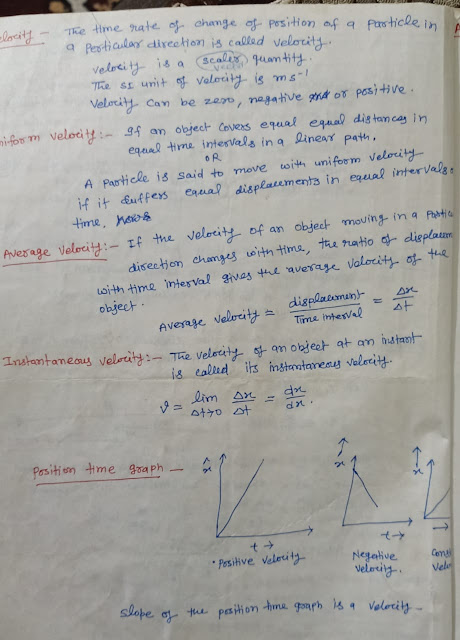 elocity – The time rate of change of position of a particle in
a perticular direction is called velocity.
velocity is a scaler quantity.
The SI unit of velocity is ms⁻¹
Velocity can be zero, negative or positive.
niform velocity:– If an object covers equal equal distances in
equal time intervals in a linear path.
OR
A Particle is said to move with uniform velocity
if it suffers equal displacements in equal intervals
time.
Average velocity:– If the velocity of an object moving in a Partic
direction changes with time, the ratio of displacem
with time interval gives the average velocity of the
object.
Average velocity = displacement / Time interval = Δx / Δt
Instantaneous velocity:– The velocity of an object at an instant
is called its instantaneous velocity.
v = lim Δt→0 Δx / Δt = dx / dx.
Position time graph –
x x x
t → t →
• Positive velocity Negative velocity. Const Velo
slope of the position time graph is a velocity –